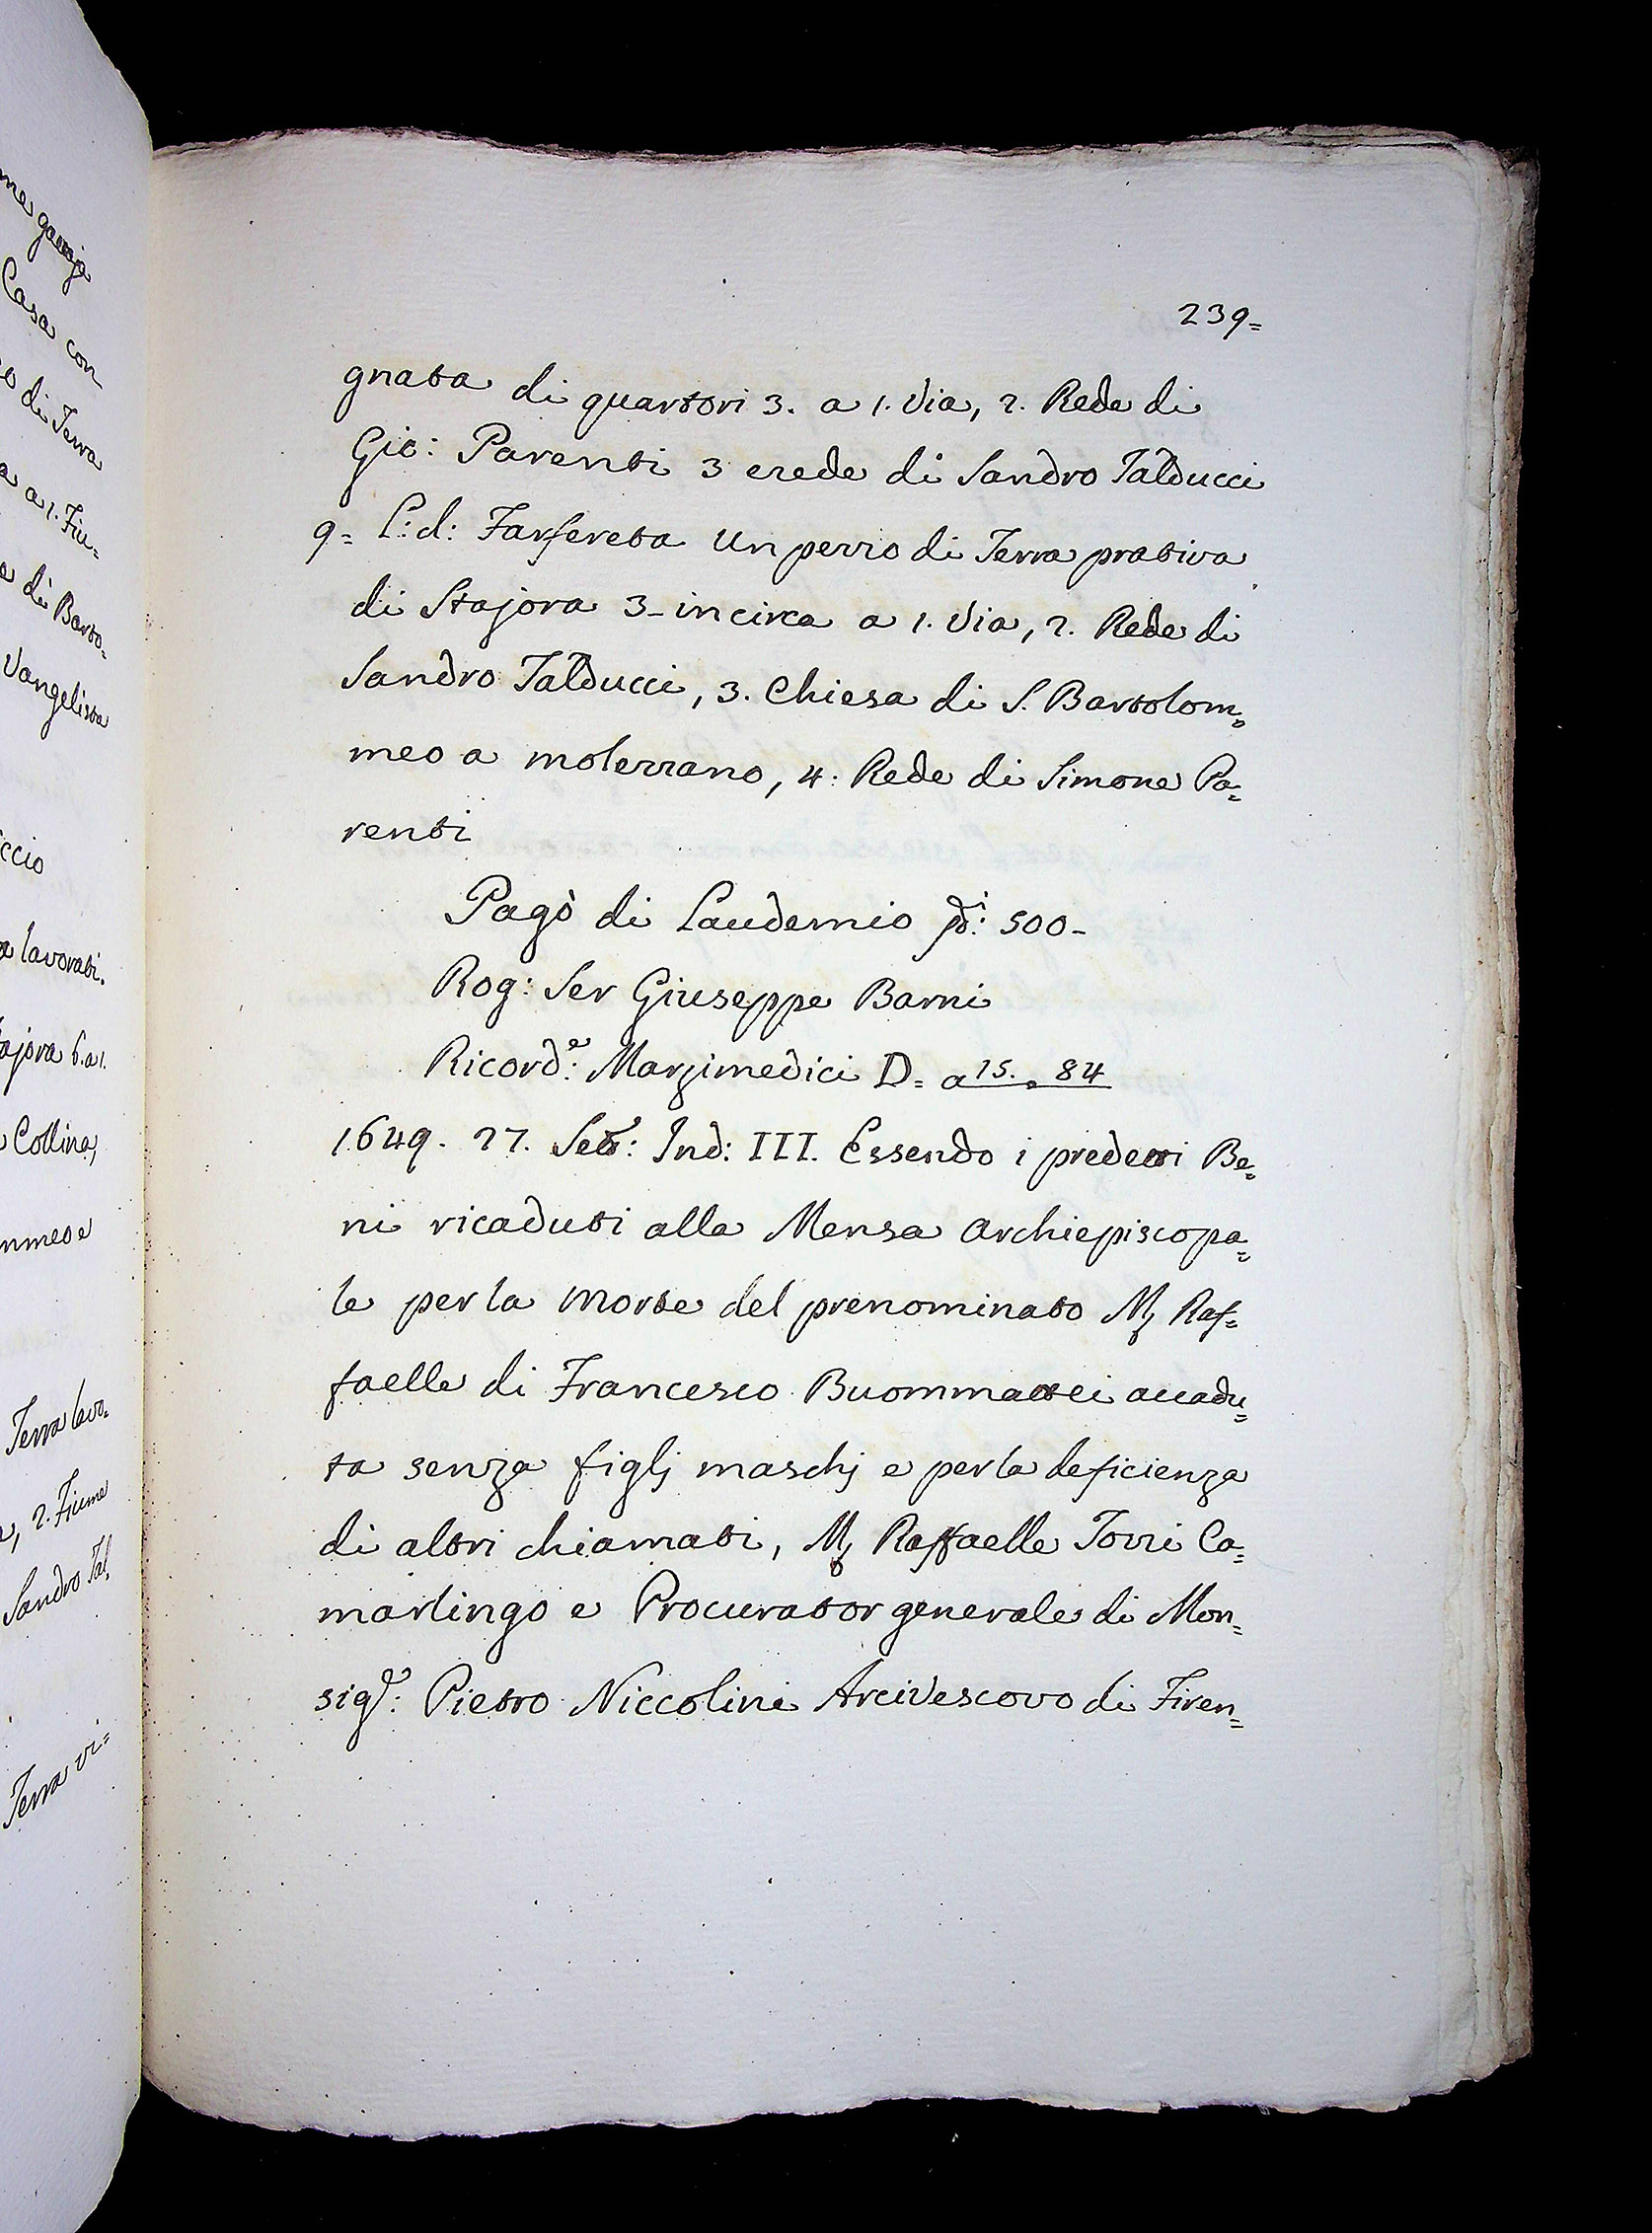 me
Casa con
o di Terra
a a 1. Fiu=
e di Barto=
Vangelista
ccio
a lavorati.
ajora 6. a 1.
Collina,
mmeo e
Terra lavo=
2. Fiume
Sandro Tal
Terra vi=
239=
gnata di quartori 3. a 1. Via, 2. Rede di
Gio: Parenti 3 erede di Sandro Talducci
9= L: d: Farfereta Un pezzo di Terra prativa
di Stajora 3- in circa a 1. Via, 2. Rede di
Sandro Talducci, 3. Chiesa di S. Bartolom=
meo a molezzano, 4: Rede di Simone Pa=
renti
Pagò di Laudemio 500-
Rog: Ser Giuseppe Barni
Ricord.e: Marzimedici D= a 15. e 84
1649. 27. Setr̃: Ind: III. Essendo i predetti Be=
ni ricaduti alla Mensa Archiepiscopa=
le per la Morte del prenominato M; Raf=
faelle di Francesco Buommattei accadu=
ta senza figlj maschj e per la deficienza
di altri chiamati, M; Raffaelle Torri Ca=
marlingo e Procurator generale di Mon=
sigr: Pietro Niccolini Arcivescovo di Firen=